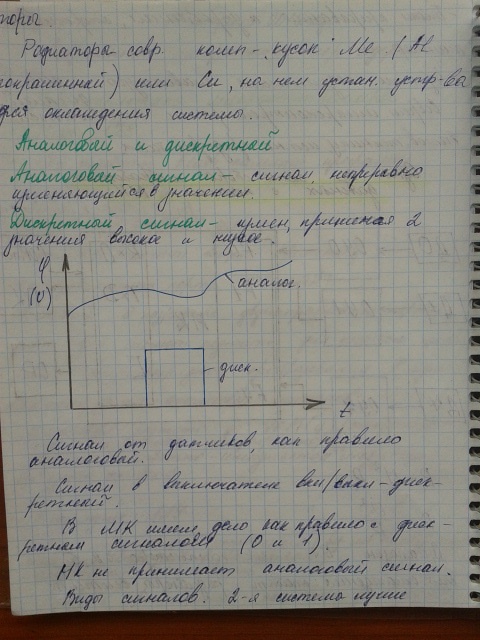 торы
Радиаторы совр. комп - кусок Ме (Al
покрашенный) или Cu, на нем устан. устр-ва
для охлаждения системы.
Аналоговый и дискретный
Аналоговый сигнал - сигнал непрерывно
изменяющийся в значении.
Дискретный сигнал - измен, принимая 2
значения высокое и низкое.
φ
(U)
аналог.
диск.
t
Сигнал от датчиков, как правило
аналоговый.
Сигнал в выключателе вкл/выкл - диск-
ретный.
В МК имеем дело как правило с диск-
ретным сигналом (0 и 1).
МК не принимает аналоговый сигнал.
Виды сигналов. 2-я система лучше